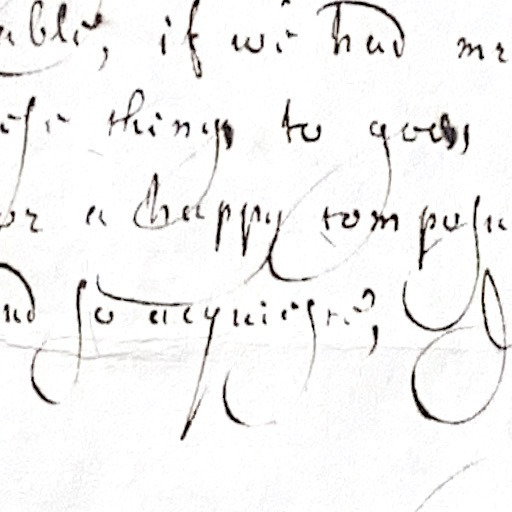 able, if we had mr
ese things to you,
or a happy compofu
nd so acquiesce,